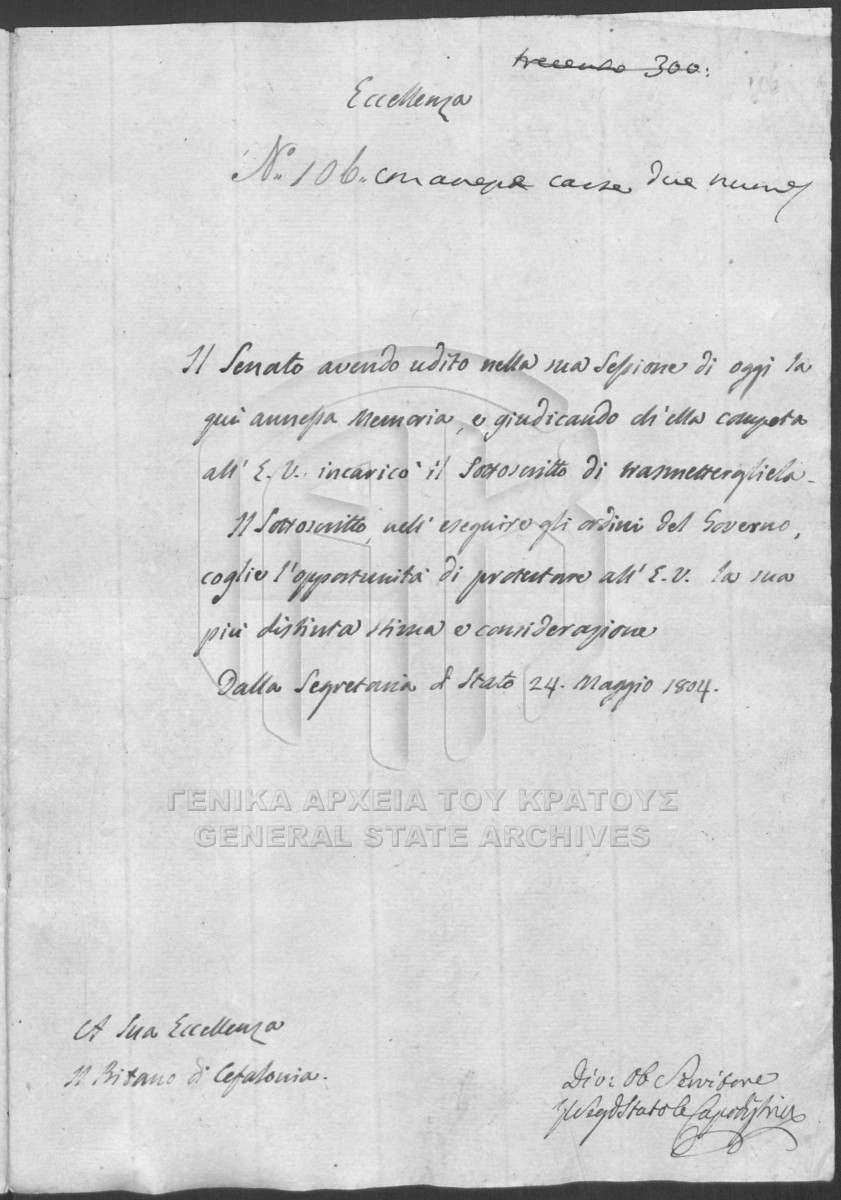 trecento 300:
Eccellenza
N.º 106. con annesse carte due nume
Il Senato avendo udito nella sua Sessione di oggi la
qui annessa Memoria, e giudicando ch'ella competa
all' E. V. incaricò il Sottoscritto di trasmettergliela.
Il Sottoscritto, nell' eseguire gli ordini del Governo,
coglie l'opportunità di protestare all' E. V. la sua
più distinta stima e considerazione
Dalla Segretaria d Stato 24. Maggio 1804.
ΓΕΝΙΚΑ ΑΡΧΕΙΑ ΤΟΥ ΚΡΑΤΟΥΣ
GENERAL STATE ARCHIVES
A Sua Eccellenza
Il Pritano di Cefalonia.
Div: Ob Servitore
Il Seg d Stato Capodistria